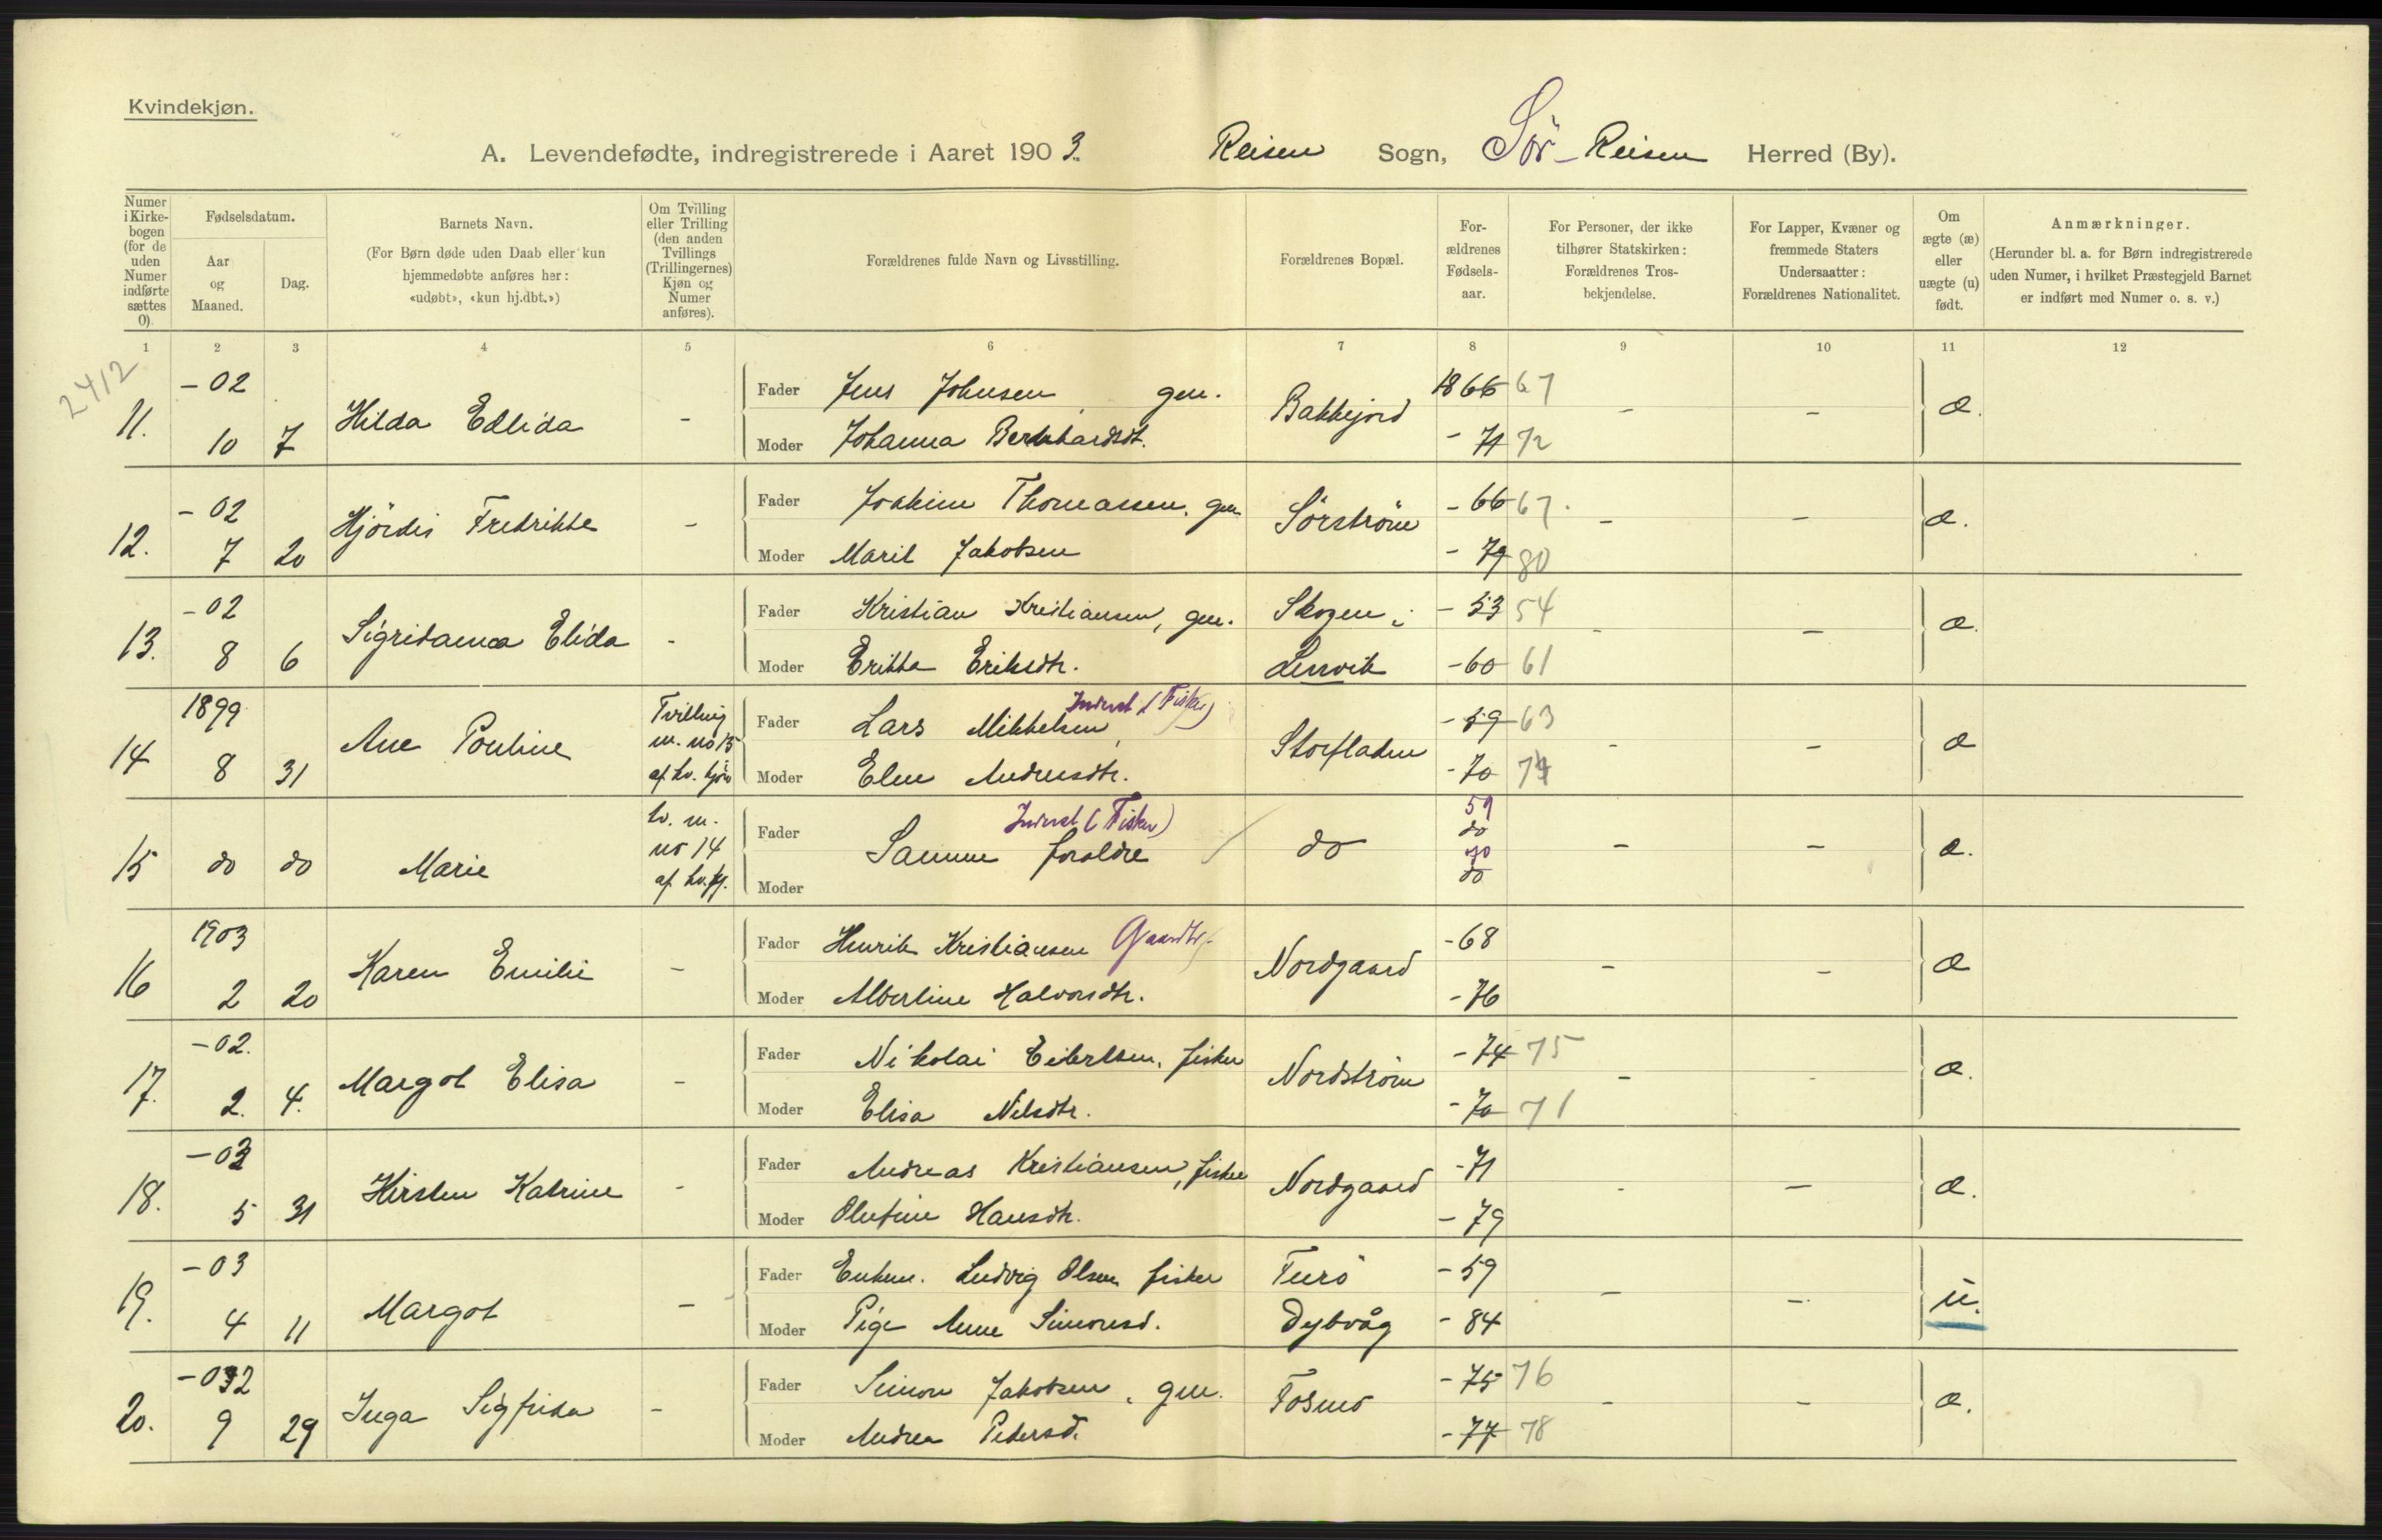 Kvindekjøn.
A. Levendefødte, indregistrerede i Aaret 1903. Reisen Sogn, Sör-Reisen Herred (By).
Numer i Kirke-bogen (for de uden Numer indførte sættes 0).
Fødselsdatum.
Aar og Maaned.
Dag.
Barnets Navn.
(For Børn døde uden Daab eller kun hjemmedøbte anføres her: «udøbt», «kun hj.dbt.»)
Om Tvilling eller Trilling (den anden Tvillings (Trillingernes) Kjøn og Numer anføres).
Forældrenes fulde Navn og Livsstilling.
Forældrenes Bopæl.
For-ældrenes Fødsels-aar.
For Personer, der ikke tilhører Statskirken: Forældrenes Tros-bekjendelse.
For Lapper, Kvæner og fremmede Staters Undersaatter: Forældrenes Nationalitet.
Om ægte (æ) eller uægte (u) født.
Anmærkninger.
(Herunder bl. a. for Børn indregistrerede uden Numer, i hvilket Præstegjeld Barnet er indført med Numer o. s. v.)
1 2 3 4 5 6 7 8 9 10 11 12
2412
-02 Fader Jens Johnsen, gm. 1866 67
11. 10 7 Hilda Edlida - Bakkejord - - æ.
Moder Johanna Bernhardsdt. - 71 72
-02 Fader Joakim Thomassen, gm - 66 67.
12. 7 20 Hjördis Fredrikke - Sörström - - æ.
Moder Maril Jakobsen - 79 80
-02 Fader Kristian Kristiansen, gm. Skogen i - 53 54
13. 8 6 Sigridanna Elida - - - æ.
Moder Erikka Eriksdtr. Lenvik - 60 61
1899 Tvilling m. no 15 af kv. kjön Fader Lars Mikkelsen, Inderst (Fisker) - 59 63
14 8 31 Ane Pouline Storfladen - - æ
Moder Elen Andreasdtr. - 70 74
tv. m. no 14 af kv. kj. Fader Inderst (Fisker) 59 do
15 do do Marie Samme foraldre do - - æ.
Moder 70 do
1903 Fader Henrik Kristiansen Gaardbr. - 68
16 2 20 Karen Emilie - Nordgaard - - æ
Moder Albertine Halvorsdtr. - 76
-02. Fader Nikolai Eilertsen, fisker - 74 75
17. 2. 4. Margot Elisa - Nordström - - æ.
Moder Elisa Nilsdtr. - 70 71
-03 Fader Andreas Kristiansen, fisker - 71
18. 5 31 Kirsten Katrine - Nordgaard - - æ.
Moder Olufine Hansdtr. - 79
-03 Fader Enkem. Ludvig Olsen fisker - 59
19. 4 11 Margot - - - u.
Moder Pige Anne Simonsd. Dybvåg - 84
-032 Fader Simon Jakobsen, gm. - 75 76
20. 9 29 Inga Sigfrida - Fosmo - - æ.
Moder Andrea Pedersd. - 77 78